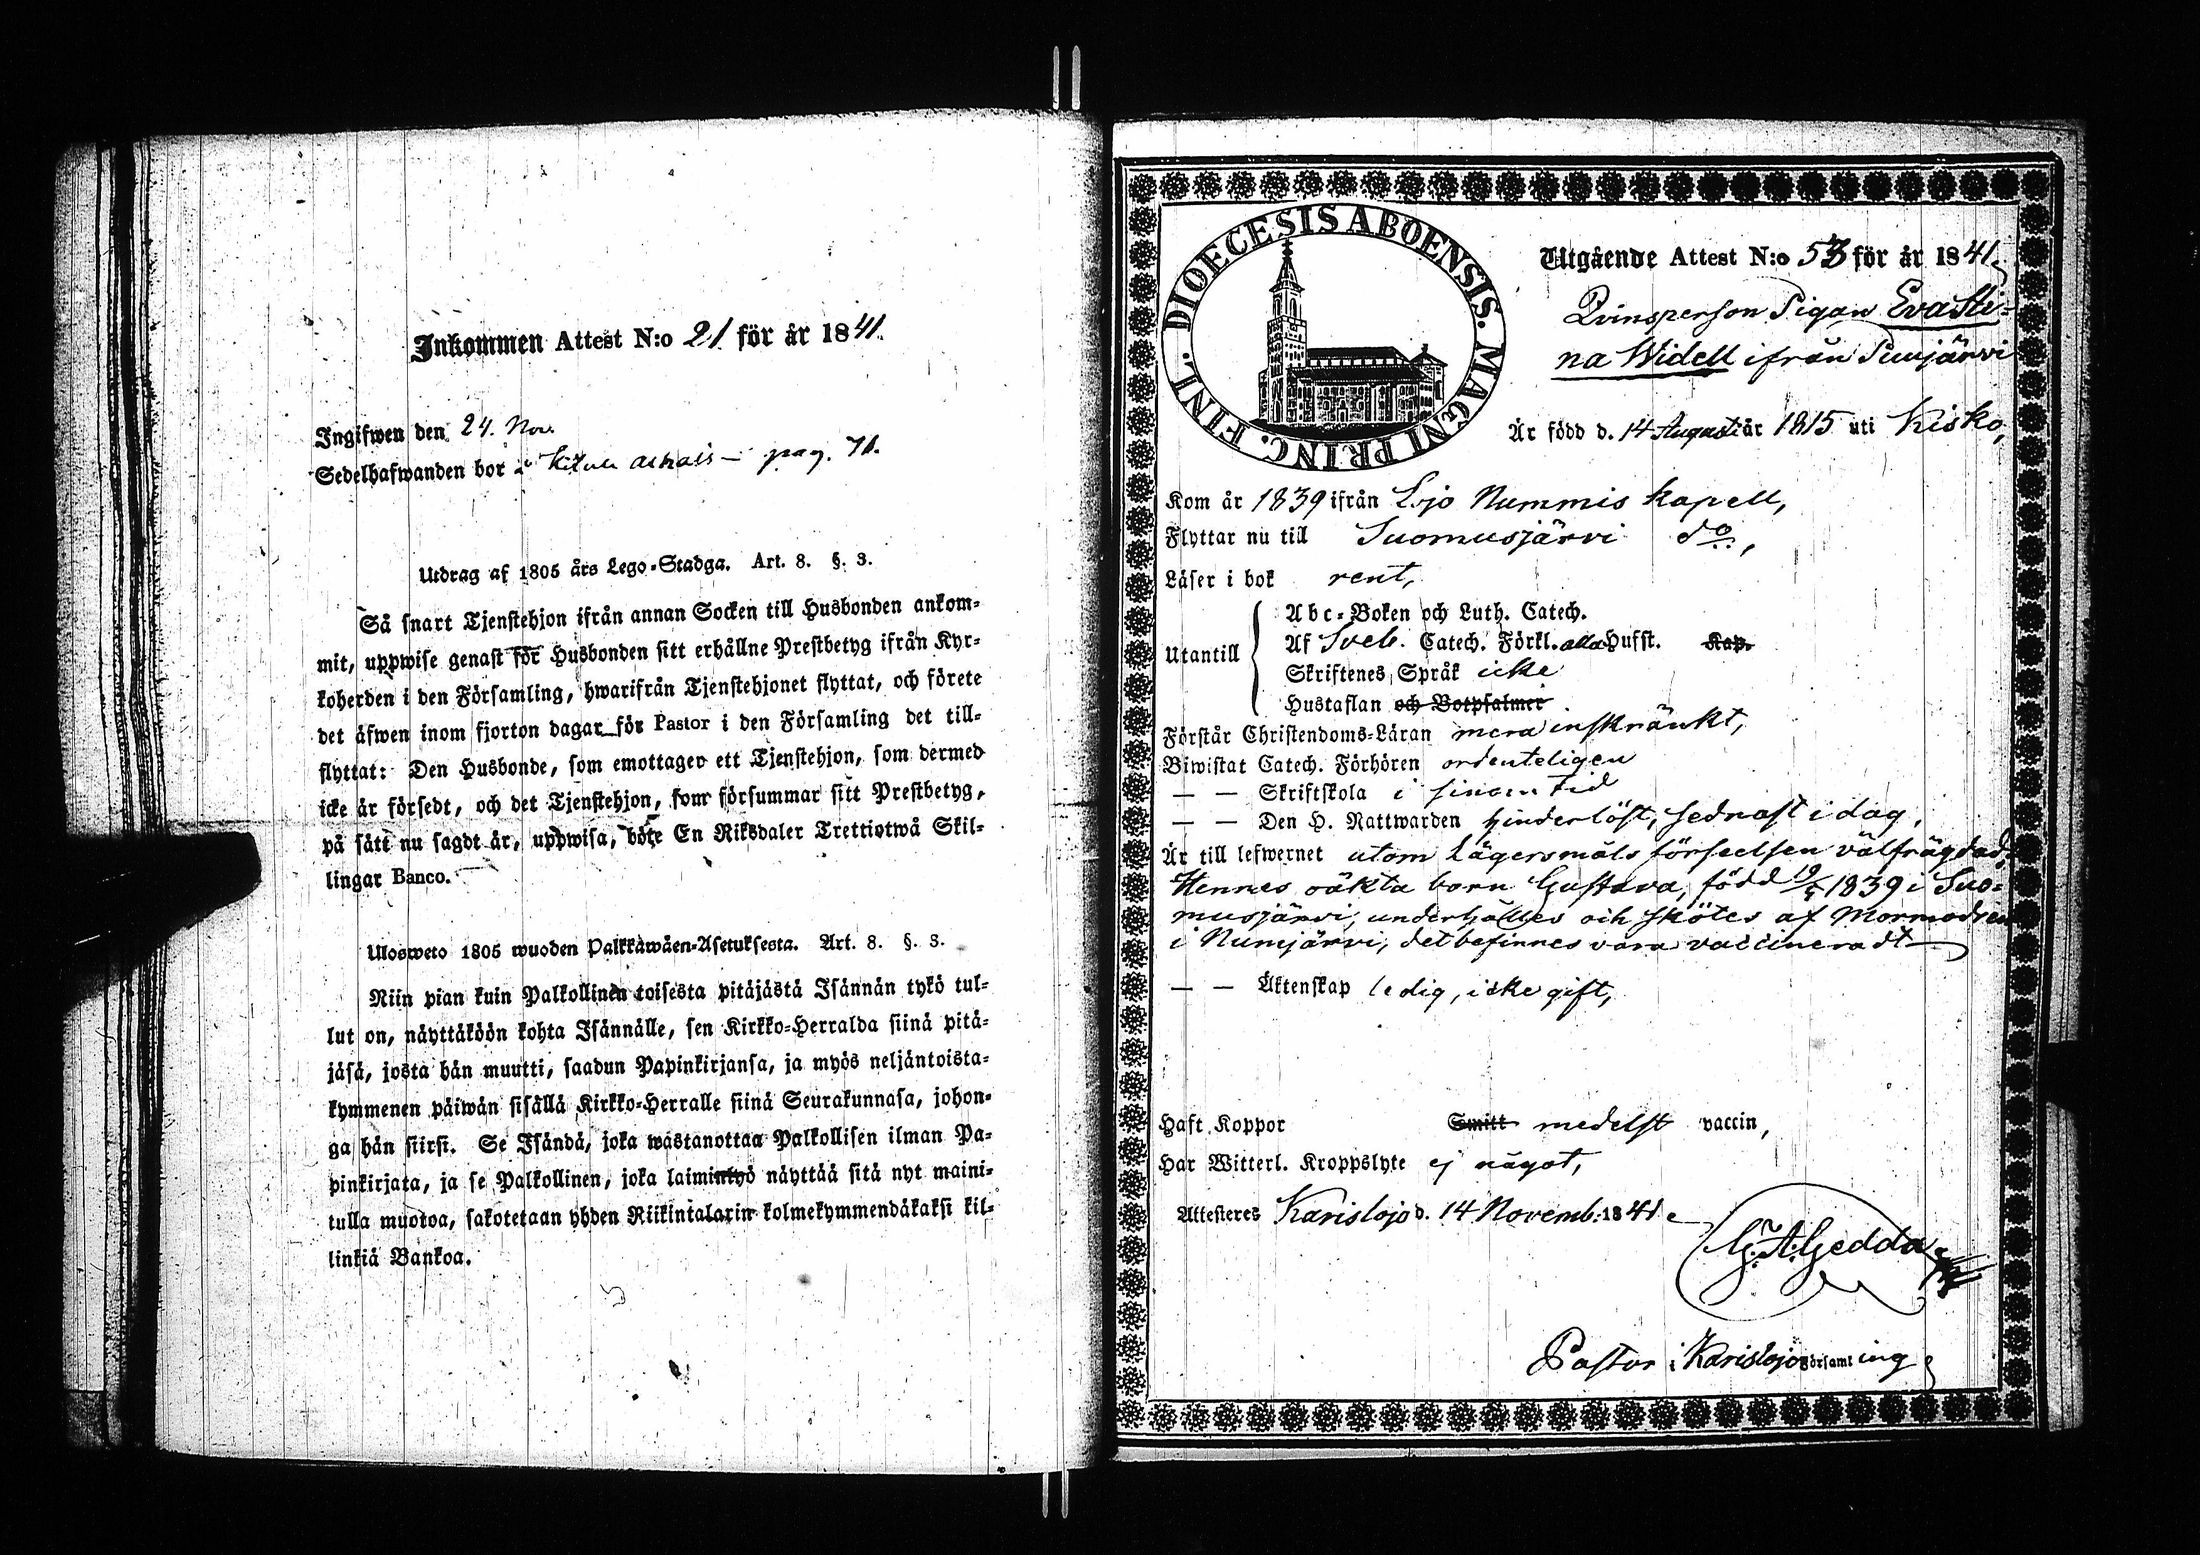 Inkommen Attest N:o 21 för år 1841.
Ingifwen den 24. Nov.
Sedelhafwanden bor pag. 71.
Utdrag af 1805 års Lego-Stadga. Art. 8. §. 3.
Så snart Tjenstehjon ifrån annan Socken till Husbonden ankom-
mit, uppwise genast för Husbonden sitt erhållne Prestbetyg ifrån Kyr-
koherden i den Församling, hwarifrån Tjenstehjonet flyttat, och förete
det äfwen inom fjorton dagar för Pastor i den Församling det till-
flyttat: Den Husbonde, som emottager ett Tjenstehjon, som dermed
icke är försedt, och det Tjenstehjon, som försummar sitt Prestbetyg,
på sätt nu sagdt är, uppwisa, böte En Riksdaler Trettiotwå Skil-
lingar Banco.
Ulosweto 1805 wuoden Palkkawäen-Asetuksesta. Art. 8. §. 3.
Niin pian kuin Palkollinen toisesta pitäjästä Isännän tykö tul-
lut on, näyttäköön kohta Isännälle, sen Kirkko-Herralda siinä pitä-
jäsä, josta hän muutti, saadun Papinkirjansa, ja myös neljäntoista-
kymmenen päiwän sisällä Kirkko-Herralle siinä Seurakunnasa, johon-
ga hän siirsi. Se Isändä, joka wastanottaa Palkollisen ilman Pa-
pinkirjata, ja se Palkollinen, joka laiminlyö näyttää sitä nyt maini-
tulla muotoa, sakotetaan yhden Riikintalarin kolmekymmendäkaksi kil-
linkiä Bankoa.
DIOECESIS ABOENSIS. MAGNI PRINC. FINL.
Utgående Attest N:o 53 för år 1841.
Qvinsperson Pigan Eva Sti-
na Widell ifrån Suujärvi
Är född d. 14 Augusti år 1815 uti Kisko,
Kom år 1839 ifrån Lojo Nummis kapell,
Flyttar nu till Suomusjärvi do,
Läser i bok rent,
Utantill
Abc-Boken och Luth. Catech.
Af Sveb. Catech. Förkl. alla Hufst. Kap.
Skriftenes Språk icke
Hustaflan och Botpsalmer
Förstår Christendoms-Läran mera inskränkt,
Biwistat Catech. Förhören ordenteligen
— — Skriftskola i sinom tid
— — Den H. Nattwarden hinderlöst, sednast i dag,
Är till lefwernet utom Lägersmåls förseelsen välfrägdad.
Hennes oäkta barn Gustava, född 19/5 1839 i Suo-
musjärvi, underhålles och skötes af Mormodren
i Numjärvi, det befinnes vara vaccineradt
— — Äktenskap ledig, icke gift,
Haft Koppor Smitt medelst vaccin,
Har Witterl. Kroppslyte ej något,
Attesteres Karislojo d. 14 Novemb. 1841.
G. A. Gedda
Pastor i Karislojo Församling